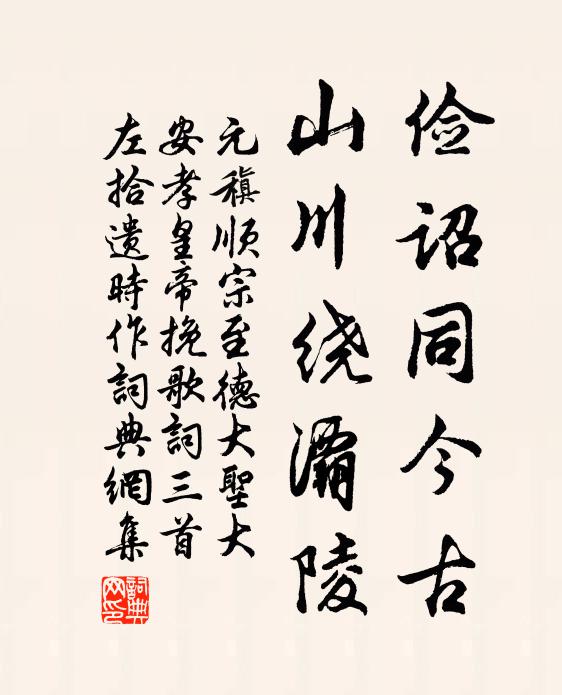 俭诏同今古
山川绕灞陵
元稹顺宗至德大聖大
安孝皇帝挽歌詞三首
左拾遗時作詞典網集
詞典
网印